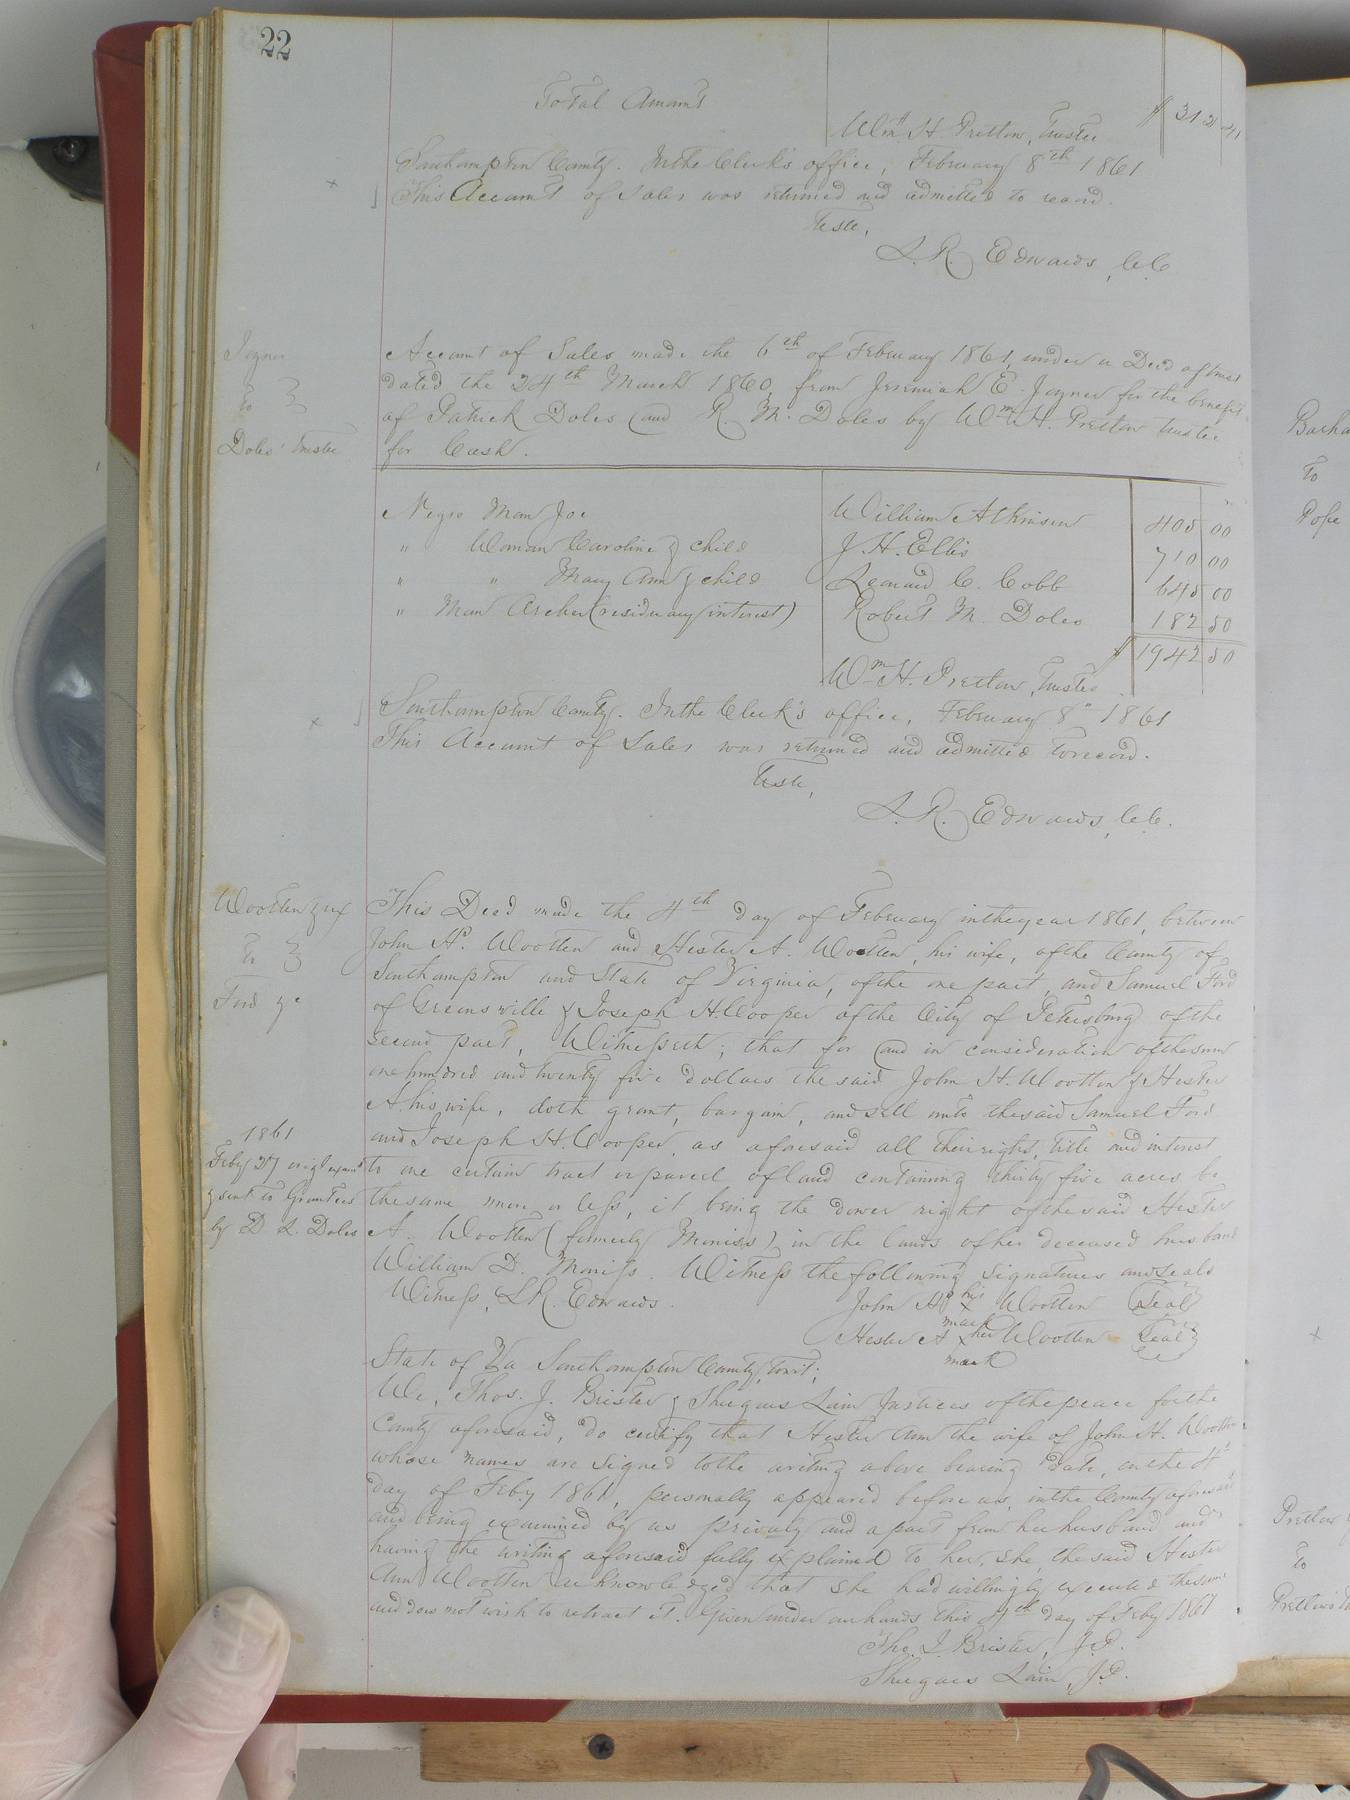 22
Total Amount
$
Wm H. Pretlow, Trustee
Southampton County. In the Clerk's office, February 8th 1861
This Account of Sales was returned and admitted to record.
Teste,
L. R. Edwards, C.C.
Joyner
to
Doles' Trustee
Account of Sales made the 6th of February 1861, under a Deed of trust
dated the 24th March 1860, from Jeremiah E. Joyner for the benefit
of Patrick Doles and R. M. Doles by Wm H. Pretlow trustee
for Cash.
Negro Man Joe William Atkinson 405 00
" Woman Caroline & child J. H. Ellis 710 00
" " Mary Ann & child Leonard C. Cobb 645 00
" Man Archer (residuary interest) Robert M. Doles 182 50
$ 1942 50
Wm H. Pretlow, Trustee
Southampton County. In the Clerk's office, February 8" 1861
This Account of Sales was returned and admitted to record.
Teste,
L. R. Edwards, C.C.
Wootten & ux
to
Ford &c
This Deed made the 4th day of February in the year 1861, between
John H. Wootten and Hester A. Wootten, his wife, of the County of
Southampton and State of Virginia, of the one part, and Samuel Ford
of Greensville & Joseph H. Cooper of the City of Petersburg of the
second part, Witnesseth; that for and in consideration of the sum
one hundred and twenty five dollars the said John H. Wootten & Hester
A. his wife, doth grant, bargain, and sell unto the said Samuel Ford
and Joseph H. Cooper, as aforesaid all their right, title and interest
to one certain tract or parcel of land containing thirty five acres be
the same more or less, it being the dower right of the said Hester
A. Wootten (formerly Moniss) in the lands of her deceased husband
William D. Moniss. Witness the following signatures and seals
1861
Feby 27 origl exam'd
& sent to Grantees
by D. L. Doles
Witness, L.R. Edwards. John H. his x mark Wootten Seal
Hester A x her mark Wootten Seal
State of Va Southampton County, to wit;
We, Thos. J. Brister & Shugars Lain Justices of the peace for the
County aforesaid, do certify that Hester Ann the wife of John H. Wootten
whose names are signed to the writing above bearing date, on the 4th
day of Feby 1861, personally appeared before us, in the County aforesaid
and being examined by us privaly and apart from her husband and
having the writing aforesaid fully explained to her, she, the said Hester
Ann Wootten acknowledged that she had willingly executed the same
and does not wish to retract it. Given under our hands this 4th day of Feby 1861
Tho. J. Brister, J.P.
Shugars Lain, J.P.
to
Pope
Pretlow
to